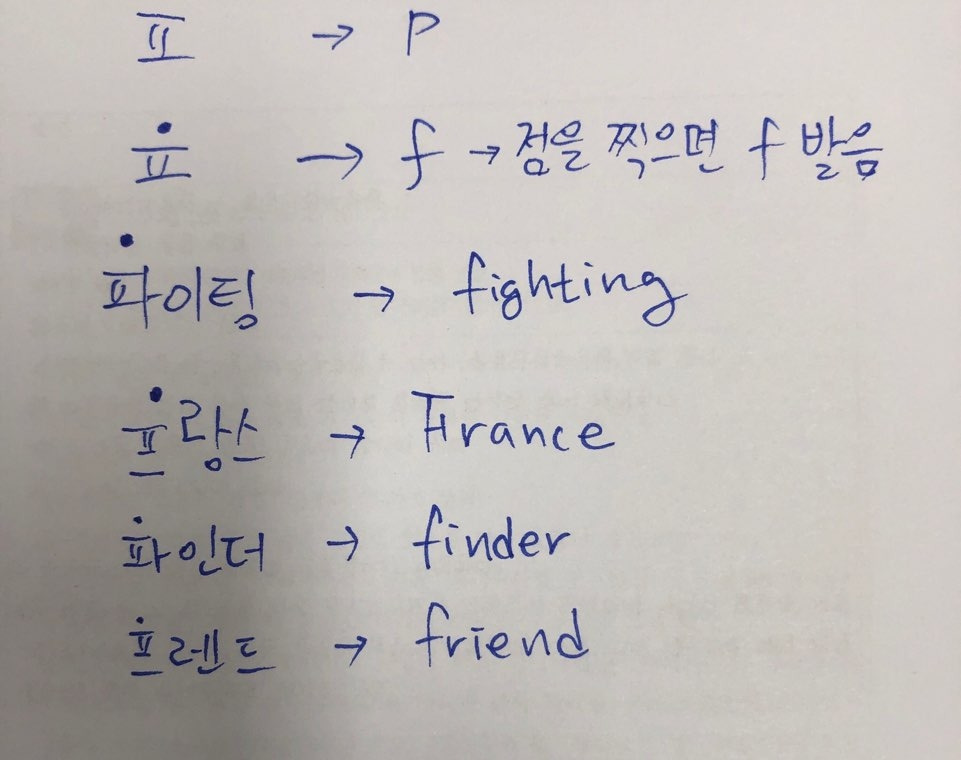 ㅍ → P
ㅍ̇ → f → 점을 찍으면 f 발음
ㅍ̇ㅏ이팅 → fighting
ㅍ̇ㅡ랑스 → France
ㅍ̇ㅏ인더 → finder
ㅍ̇ㅡ렌드 → friend